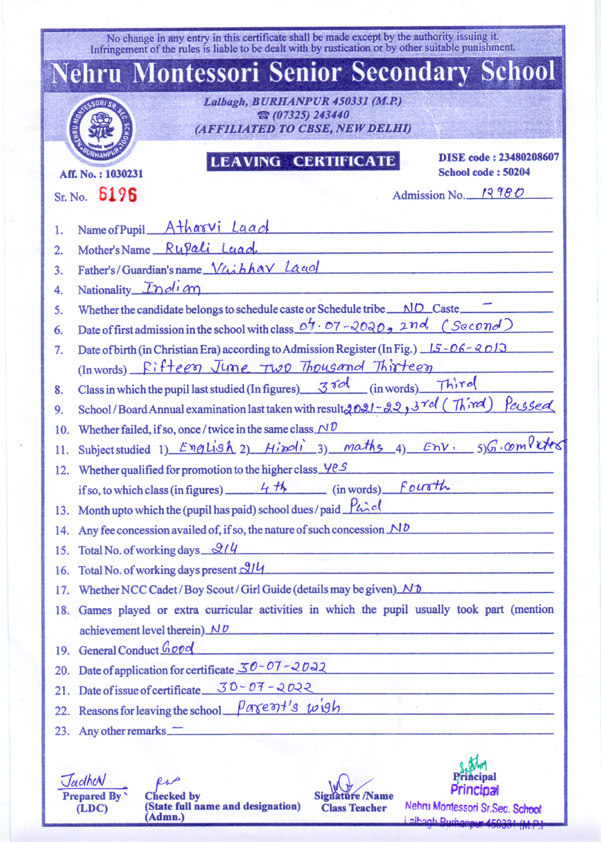 No change in any entry in this certificate shall be made except by the authority issuing it.
Infringement of the rules is liable to be dealt with by rustication or by other suitable punishment.
Nehru Montessori Senior Secondary School
Lalbagh, BURHANPUR 450331 (M.P.)
☎ (07325) 243440
(AFFILIATED TO CBSE, NEW DELHI)
NEHRU MONTESSORI SR. SEC. SCHOOL
BURHANPUR
LEAVING CERTIFICATE
DISE code : 23480208607
School code : 50204
Aff. No. : 1030231
Sr. No. 6196
Admission No. 12980
1. Name of Pupil Atharvi Laad
2. Mother's Name Rupali Laad
3. Father's / Guardian's name Vaibhav Laad
4. Nationality Indian
5. Whether the candidate belongs to schedule caste or Schedule tribe NO Caste —
6. Date of first admission in the school with class 04-07-2020, 2nd (Second)
7. Date of birth (in Christian Era) according to Admission Register (In Fig.) 15-06-2013
(In words) Fifteen June Two Thousand Thirteen
8. Class in which the pupil last studied (In figures) 3rd (in words) Third
9. School / Board Annual examination last taken with result 2021-22, 3rd (Third) Passed
10. Whether failed, if so, once / twice in the same class NO
11. Subject studied 1) English 2) Hindi 3) maths 4) Env. 5) G.computer
12. Whether qualified for promotion to the higher class yes
if so, to which class (in figures) 4th (in words) Fourth
13. Month upto which the (pupil has paid) school dues / paid Paid
14. Any fee concession availed of, if so, the nature of such concession NO
15. Total No. of working days 214
16. Total No. of working days present 214
17. Whether NCC Cadet / Boy Scout / Girl Guide (details may be given) NO
18. Games played or extra curricular activities in which the pupil usually took part (mention
achievement level therein) NO
19. General Conduct Good
20. Date of application for certificate 30-07-2022
21. Date of issue of certificate 30-07-2022
22. Reasons for leaving the school Parent's wish
23. Any other remarks —
Prepared By
(LDC)
Checked by
(State full name and designation)
(Admn.)
Signature / Name
Class Teacher
Principal
Principal
Nehru Montessori Sr.Sec. School
Lalbagh Burhanpur 450331 (M.P.)